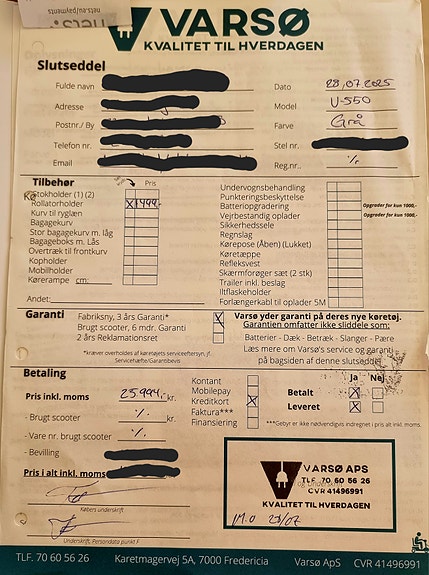 nets.eu/payments
nets
VARSØ
KVALITET TIL HVERDAGEN
Slutseddel
Fulde navn
Dato 28,07.2025
Adresse
Model U-550
Postnr./ By
Farve Grå
Telefon nr.
Stel nr.
Email
Reg.nr.. %
Tilbehør
Pris
Stokholder (1) (2)
Rollatorholder X 1499,-
Kurv til ryglæn
Bagagekurv
Stor bagagekurv m. låg
Bagageboks m. Lås
Overtræk til frontkurv
Kopholder
Mobilholder
Kørerampe cm:
Andet:
Undervognsbehandling
Punkteringsbeskyttelse
Batteriopgradering Opgrader for kun 1000,-
Vejrbestandig oplader Opgrader for kun 1000,-
Sikkerhedssele
Regnslag
Kørepose (Åben) (Lukket)
Køretæppe
Refleksvest
Skærmforøger sæt (2 stk)
Trailer inkl. beslag
Iltflaskeholder
Forlængerkabl til oplader 5M
Garanti
Fabriksny, 3 års Garanti* X
Brugt scooter, 6 mdr. Garanti
2 års Reklamationsret
*kræver overholdes af køretøjets serviceeftersyn, jf.
Servicehæfte/Garantibevis
Varsø yder garanti på deres nye køretøj.
Garantien omfatter ikke sliddele som:
Batterier - Dæk - Betræk - Slanger - Pære
Læs mere om Varsø's service og garanti
på bagsiden af denne slutseddel
Betaling
Pris inkl. moms 25.994,- kr.
- Brugt scooter %
- Vare nr. brugt scooter %
- Bevilling
Pris i alt inkl. moms
Købers underskrift
Underskrift, Persondata punkt F
Kontant
Mobilepay
Kreditkort X
Faktura***
Finansiering
Ja Nej
Betalt X
Leveret X
***Gebyr er ikke nødvendigvis indregnet i pris alt inkl. moms
VARSØ APS
og underskrift
TLF. 70 60 56 26
CVR 41496991
KVALITET TIL HVERDAGEN
I.M.O 28/07
TLF. 70 60 56 26 Karetmagervej 5A, 7000 Fredericia Varsø ApS CVR 41496991